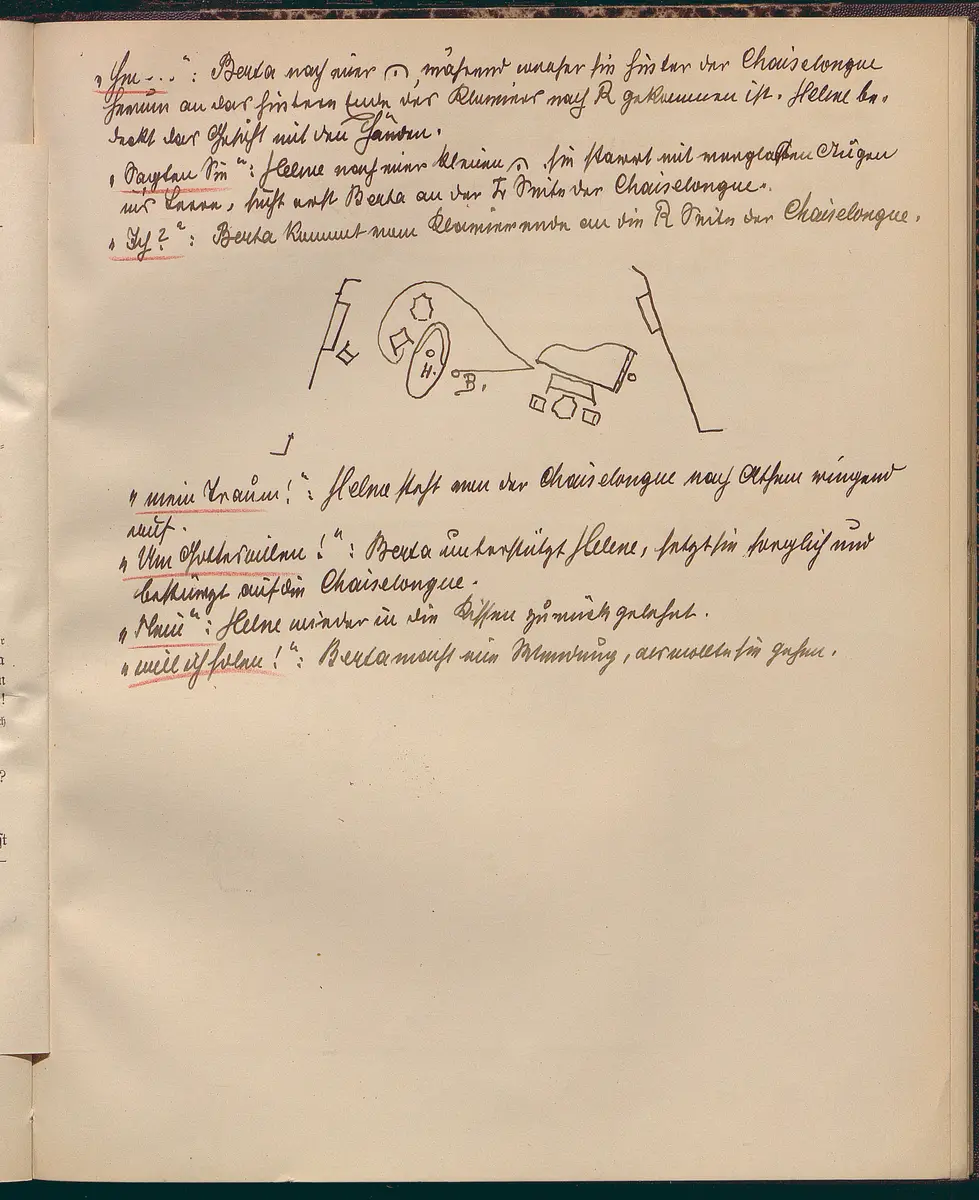 „Hm...“: Berta nach einer ⌒, während welcher sie hinter der Chaiselongue
herum an das hintere Ende des Klaviers nach R gekommen ist. Helene be-
deckt das Gesicht mit den Händen.
„Sagten Sie“: Helene nach einer kleinen ⌒. sie starrt mit verglasten Augen
ins Leere, sucht erst Berta an der L Seite der Chaiselongue.
„Ich?“: Berta kommt vom Klavierende an die R Seite der Chaiselongue.
H.
B.
„mein Traum!“: Helene steht von der Chaiselongue nach Athem ringend
auf.
„Um Gotteswillen!“: Berta unterstützt Helene, setzt sie sorglich und
bestürzt auf die Chaiselongue.
„Nein“: Helene wieder in die Kissen zurückgelehnt.
„will ich holen!“: Berta macht eine Wendung, als wollte sie gehen.